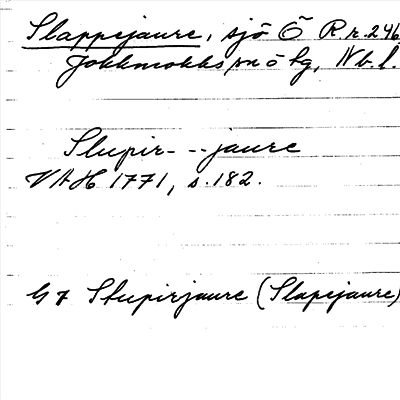 Slappejaure, sjö Ö R.r.246
Jokkmokks sn o lg, Nb.l.
Slupir- --jaure
VAH 1771, s.182.
G 7 Stupirjaure (Slapejaure)